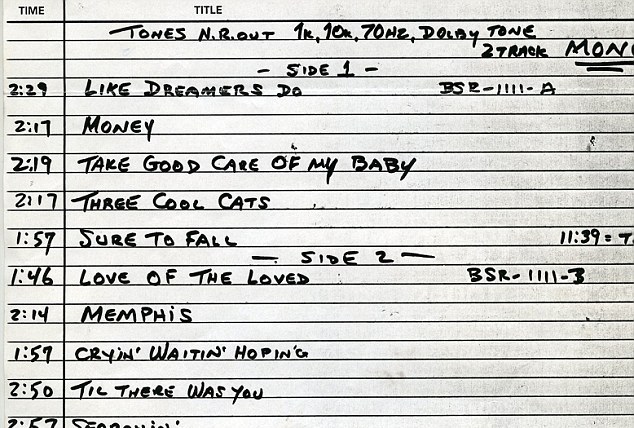 TIME TITLE
TONES N.R.OUT 1K, 10K, 70HZ, DOLBY TONE
2TRACK MONO
- SIDE 1 -
2:29 LIKE DREAMERS DO BSR-1111-A
2:17 MONEY
2:19 TAKE GOOD CARE OF MY BABY
2:17 THREE COOL CATS
1:57 SURE TO FALL 11:39 = T
— SIDE 2 —
1:46 LOVE OF THE LOVED BSR-1111-B
2:14 MEMPHIS
1:57 CRYIN' WAITIN' HOPING
2:50 TIL THERE WAS YOU
2:57 SEARCHIN'